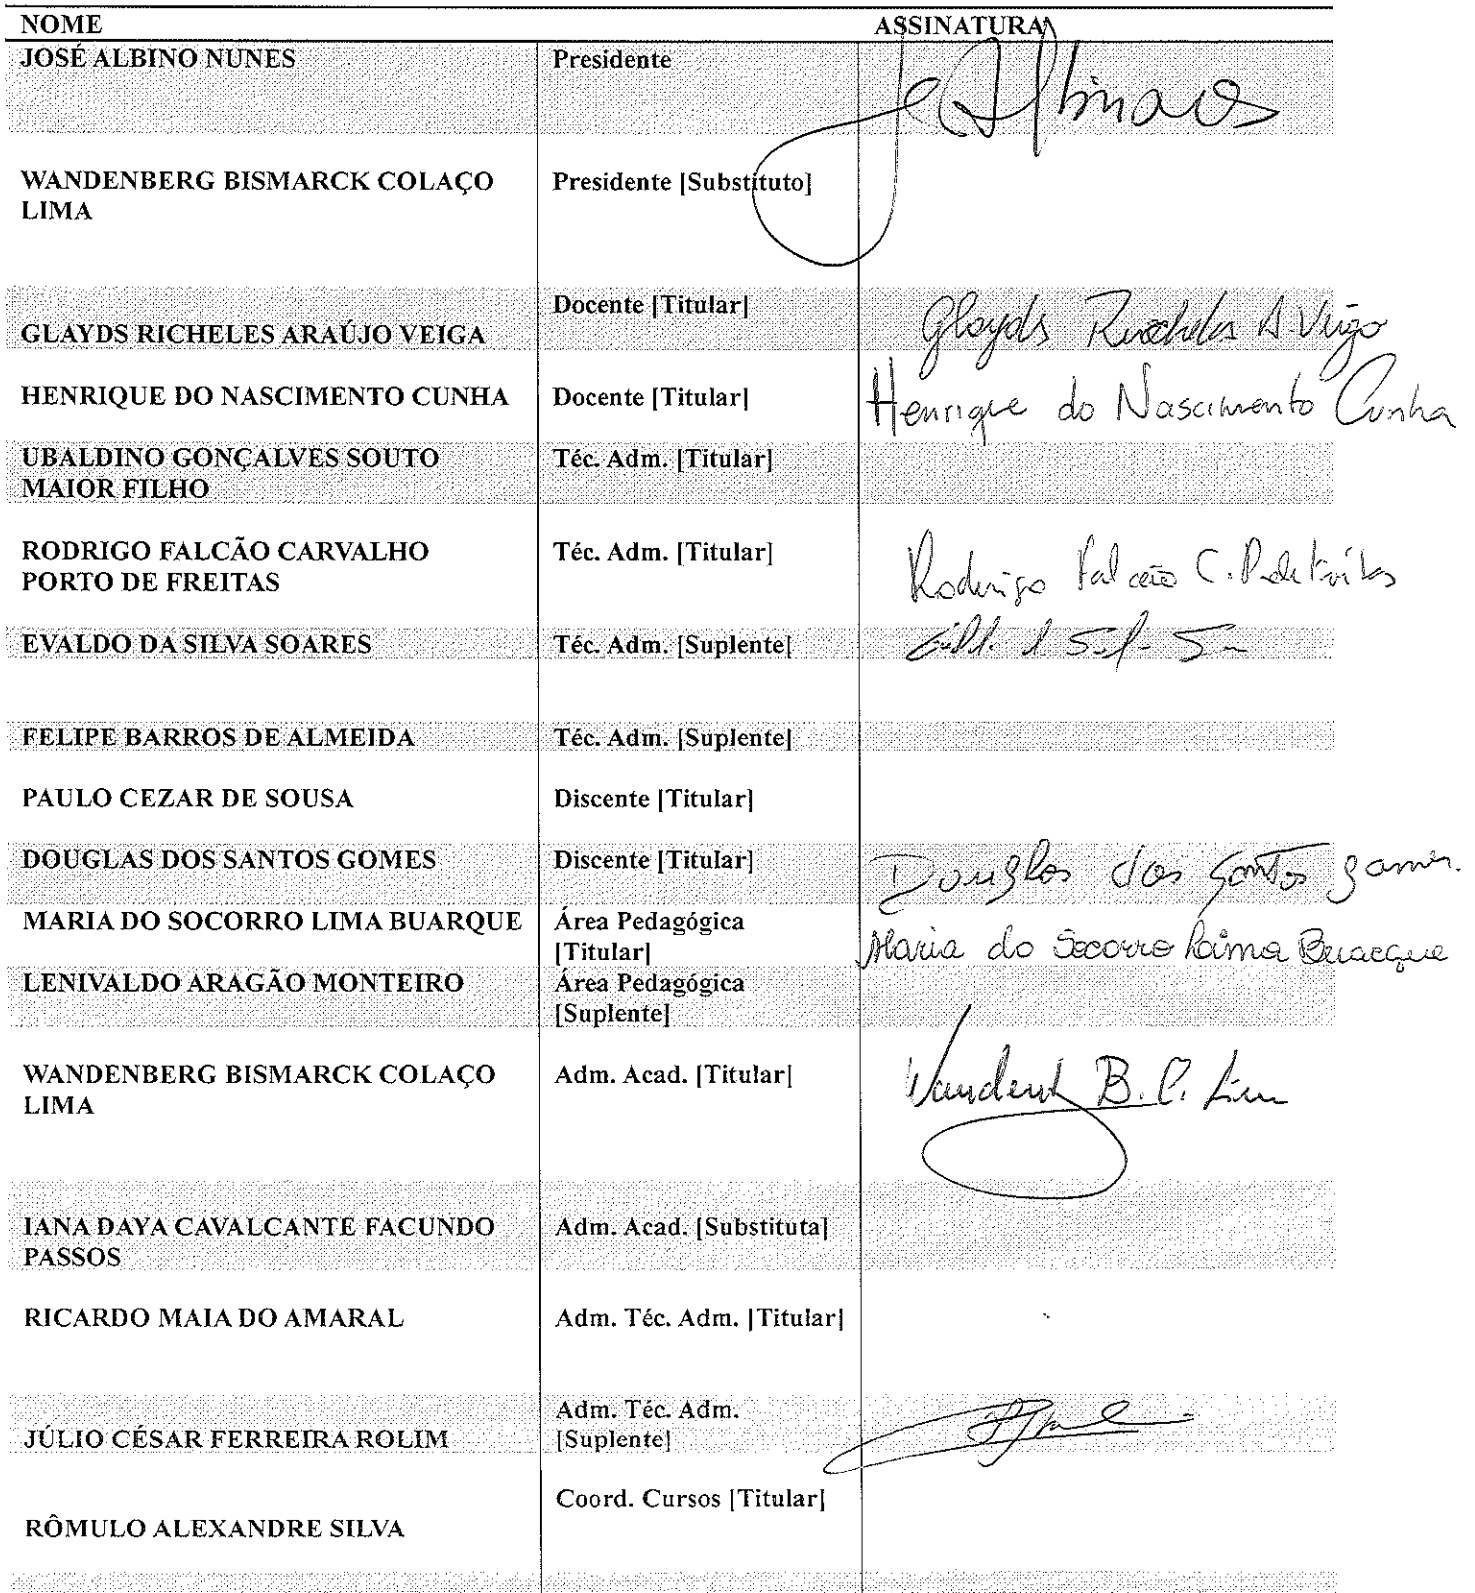 NOME ASSINATURA
JOSÉ ALBINO NUNES Presidente
WANDENBERG BISMARCK COLAÇO Presidente [Substituto]
LIMA
Docente [Titular]
GLAYDS RICHELES ARAÚJO VEIGA Glayds Richeles A Veiga
HENRIQUE DO NASCIMENTO CUNHA Docente [Titular] Henrique do Nascimento Cunha
UBALDINO GONÇALVES SOUTO Téc. Adm. [Titular]
MAIOR FILHO
RODRIGO FALCÃO CARVALHO Téc. Adm. [Titular]
PORTO DE FREITAS Rodrigo Falcão C. P. de Freitas
EVALDO DA SILVA SOARES Téc. Adm. [Suplente]
FELIPE BARROS DE ALMEIDA Téc. Adm. [Suplente]
PAULO CEZAR DE SOUSA Discente [Titular]
DOUGLAS DOS SANTOS GOMES Discente [Titular] Douglas dos Santos Gomes.
MARIA DO SOCORRO LIMA BUARQUE Área Pedagógica
[Titular] Maria do Socorro Lima Buarque
LENIVALDO ARAGÃO MONTEIRO Área Pedagógica
[Suplente]
WANDENBERG BISMARCK COLAÇO Adm. Acad. [Titular] B. C. Lima
LIMA
IANA DAYA CAVALCANTE FACUNDO Adm. Acad. [Substituta]
PASSOS
RICARDO MAIA DO AMARAL Adm. Téc. Adm. [Titular]
Adm. Téc. Adm.
JÚLIO CÉSAR FERREIRA ROLIM [Suplente]
Coord. Cursos [Titular]
RÔMULO ALEXANDRE SILVA